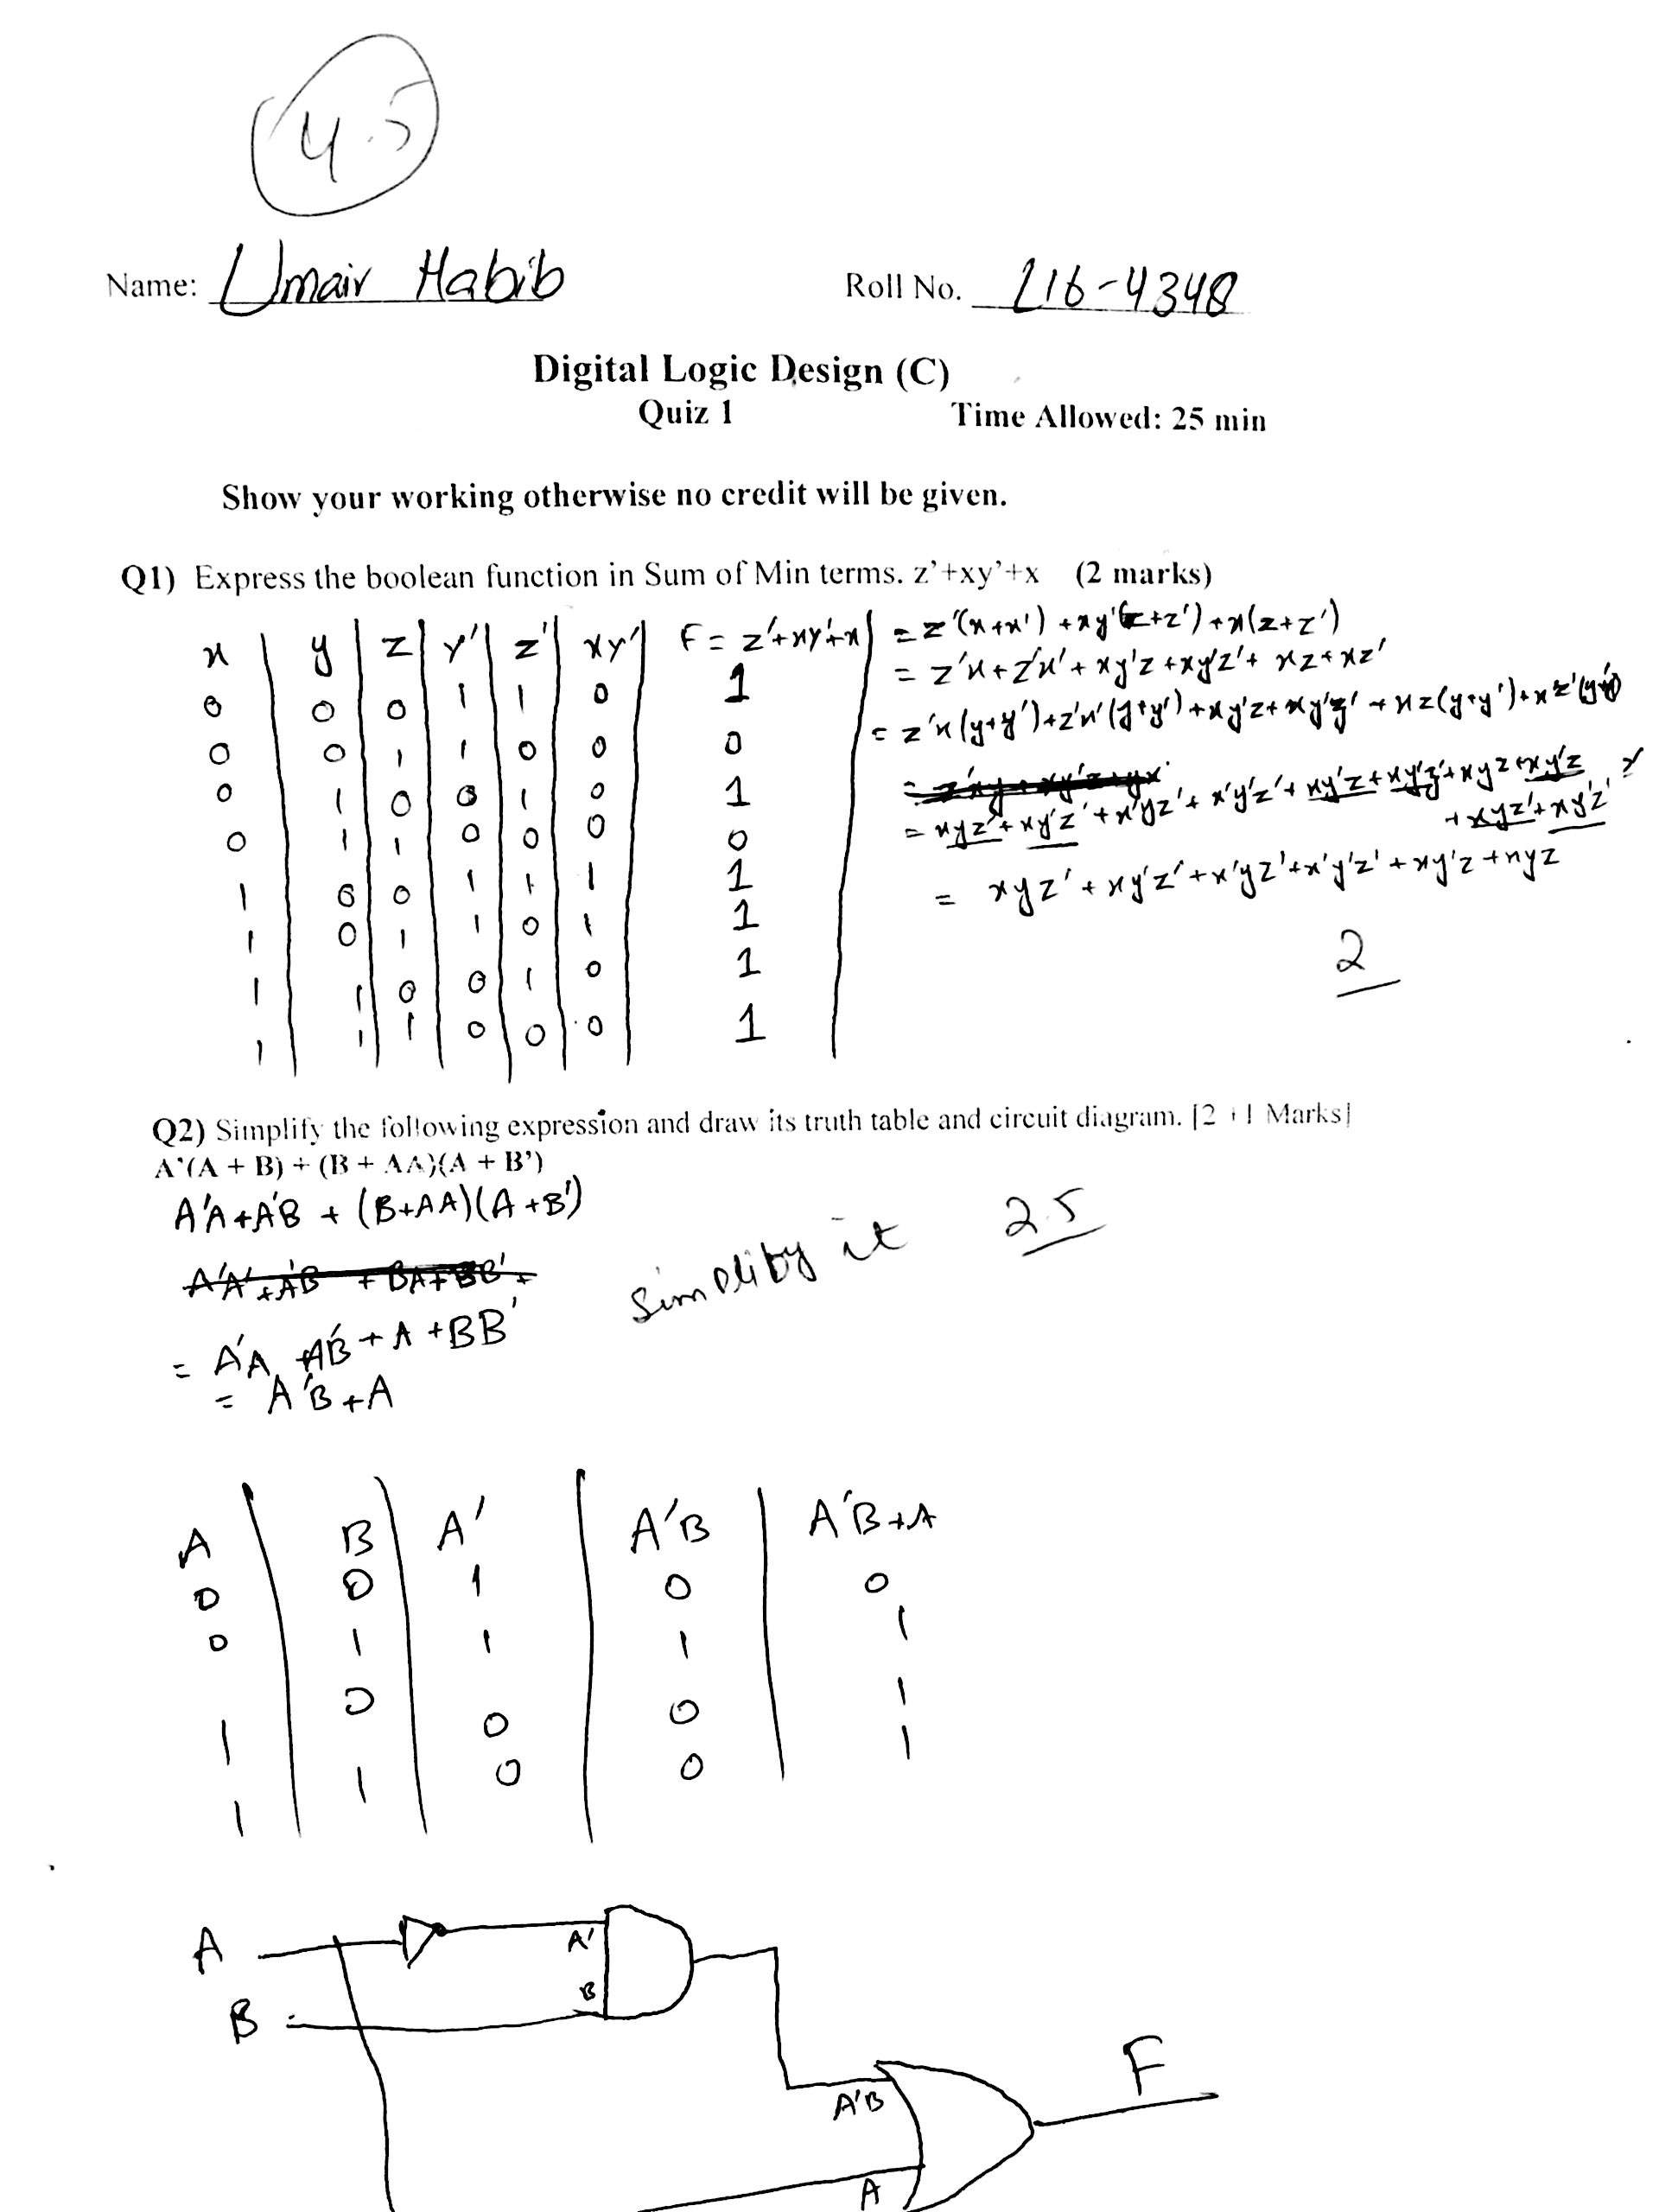 4.5
Name: Umair Habib Roll No. L16-4348
Digital Logic Design (C)
Quiz 1 Time Allowed: 25 min
Show your working otherwise no credit will be given.
Q1) Express the boolean function in Sum of Min terms. z'+xy'+x (2 marks)
x y z y' z' xy' F = z'+xy'+x
0 0 0 1 1 0 1
0 0 1 1 0 0 0
0 1 0 0 1 0 1
0 1 1 0 0 0 0
1 0 0 1 1 1 1
1 0 1 1 0 1 1
1 1 0 0 1 0 1
1 1 1 0 0 0 1
= z'(x+x') + xy'(z+z') + x(z+z')
= z'x + z'x' + xy'z + xy'z' + xz + xz'
= z'x(y+y') + z'x'(y+y') + xy'z + xy'z' + xz(y+y') + xz'(y+y')
= xyz' + xy'z' + x'yz' + x'y'z' + xy'z + xy'z' + xyz + xy'z
+ xyz' + xy'z'
= xyz' + xy'z' + x'yz' + x'y'z' + xy'z + xyz
2
Q2) Simplify the following expression and draw its truth table and circuit diagram. [2 +1 Marks]
A'(A + B) + (B + AA)(A + B')
A'A + A'B + (B+AA)(A+B')
A'A' + A'B + BA + BB' +
= A'A + A'B + A + BB'
= A'B + A
simplify it 2.5
A B A' A'B A'B+A
0 0 1 0 0
0 1 1 1 1
1 0 0 0 1
1 1 0 0 1
A A'
B B
F
A'B
A